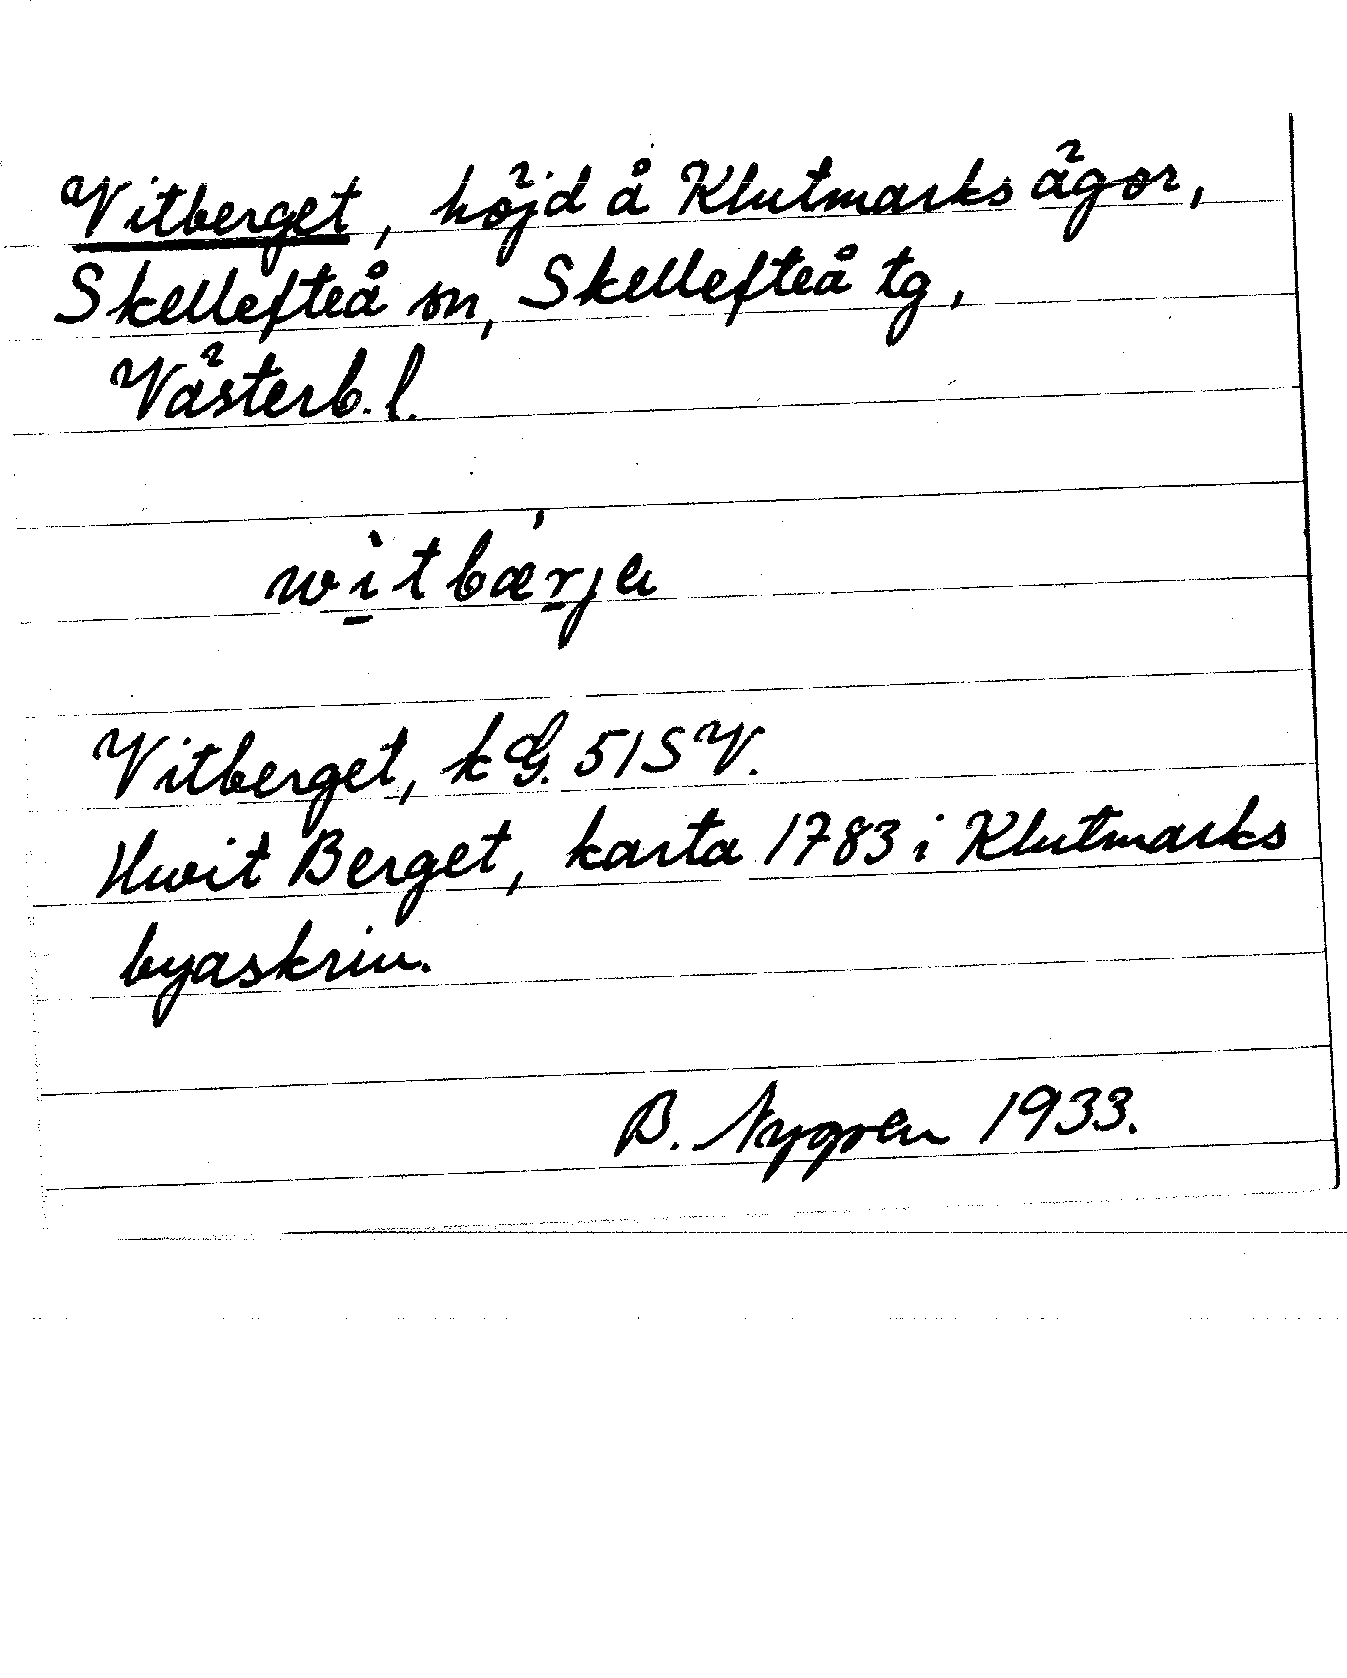 Vitberget, höjd å Klutmarks ägor,
Skellefteå sn, Skellefteå tg,
Västerb. l.
wìtbær̠ja
Vitberget, kG. 51SV.
Hwit Berget, karta 1783 i Klutmarks
byaskrin.
B. Nygren 1933.